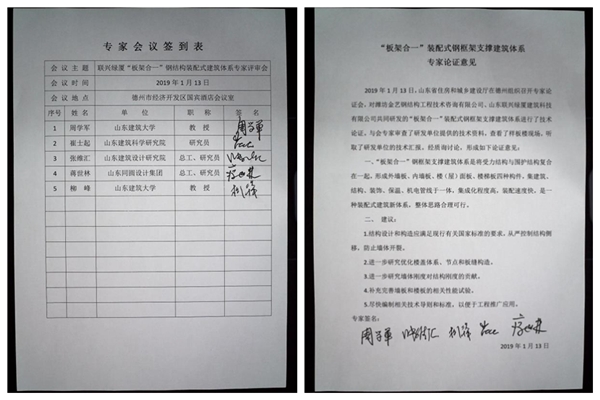 专家会议签到表
会议主题 联兴绿厦“板架合一”钢结构装配式建筑体系专家评审会
会议时间 2019年1月13日
会议地点 德州市经济开发区国宾酒店会议室
序号 姓名 单位 职称 签名
1 周学军 山东建筑大学 教授 周学军
2 崔士起 山东建筑科学研究院 研究员
3 张维汇 山东建筑设计研究院 总工、研究员
4 蒋世林 山东同圆设计集团 总工、研究员
5 柳峰 山东建筑大学 教授
“板架合一”装配式钢框架支撑建筑体系
专家论证意见
2019年1月13日,山东省住房和城乡建设厅在德州组织召开专家论
证会,对潍坊金艺钢结构工程技术咨询有限公司、山东联兴绿厦建筑科技
有限公司共同研发的“板架合一”装配式钢框架支撑建筑体系进行了技术
论证。与会专家审查了研发单位提供的技术资料,查看了样板楼现场,听
取了研发单位的技术汇报,经质询讨论,形成如下论证意见:
一、“板架合一”钢框架支撑建筑体系是将受力结构与围护结构复合
在一起,形成外墙板、内墙板、楼(屋)面板、楼梯板四种构件,集建筑、
结构、装饰、保温、机电管线于一体,集成化程度高,装配速度快,是一
种装配式建筑新体系,整体思路合理可行。
二、建议:
1.结构设计和构造应满足现行有关国家标准的要求,从严控制结构侧
移,防止墙体开裂。
2.进一步研究优化楼盖体系、节点和板缝构造。
3.进一步研究墙体刚度对结构刚度的贡献。
4.补充完善墙板和楼板的相关性能试验。
5.尽快编制相关技术导则和标准,以便于工程推广应用。
专家签名:
周学军
2019年1月13日